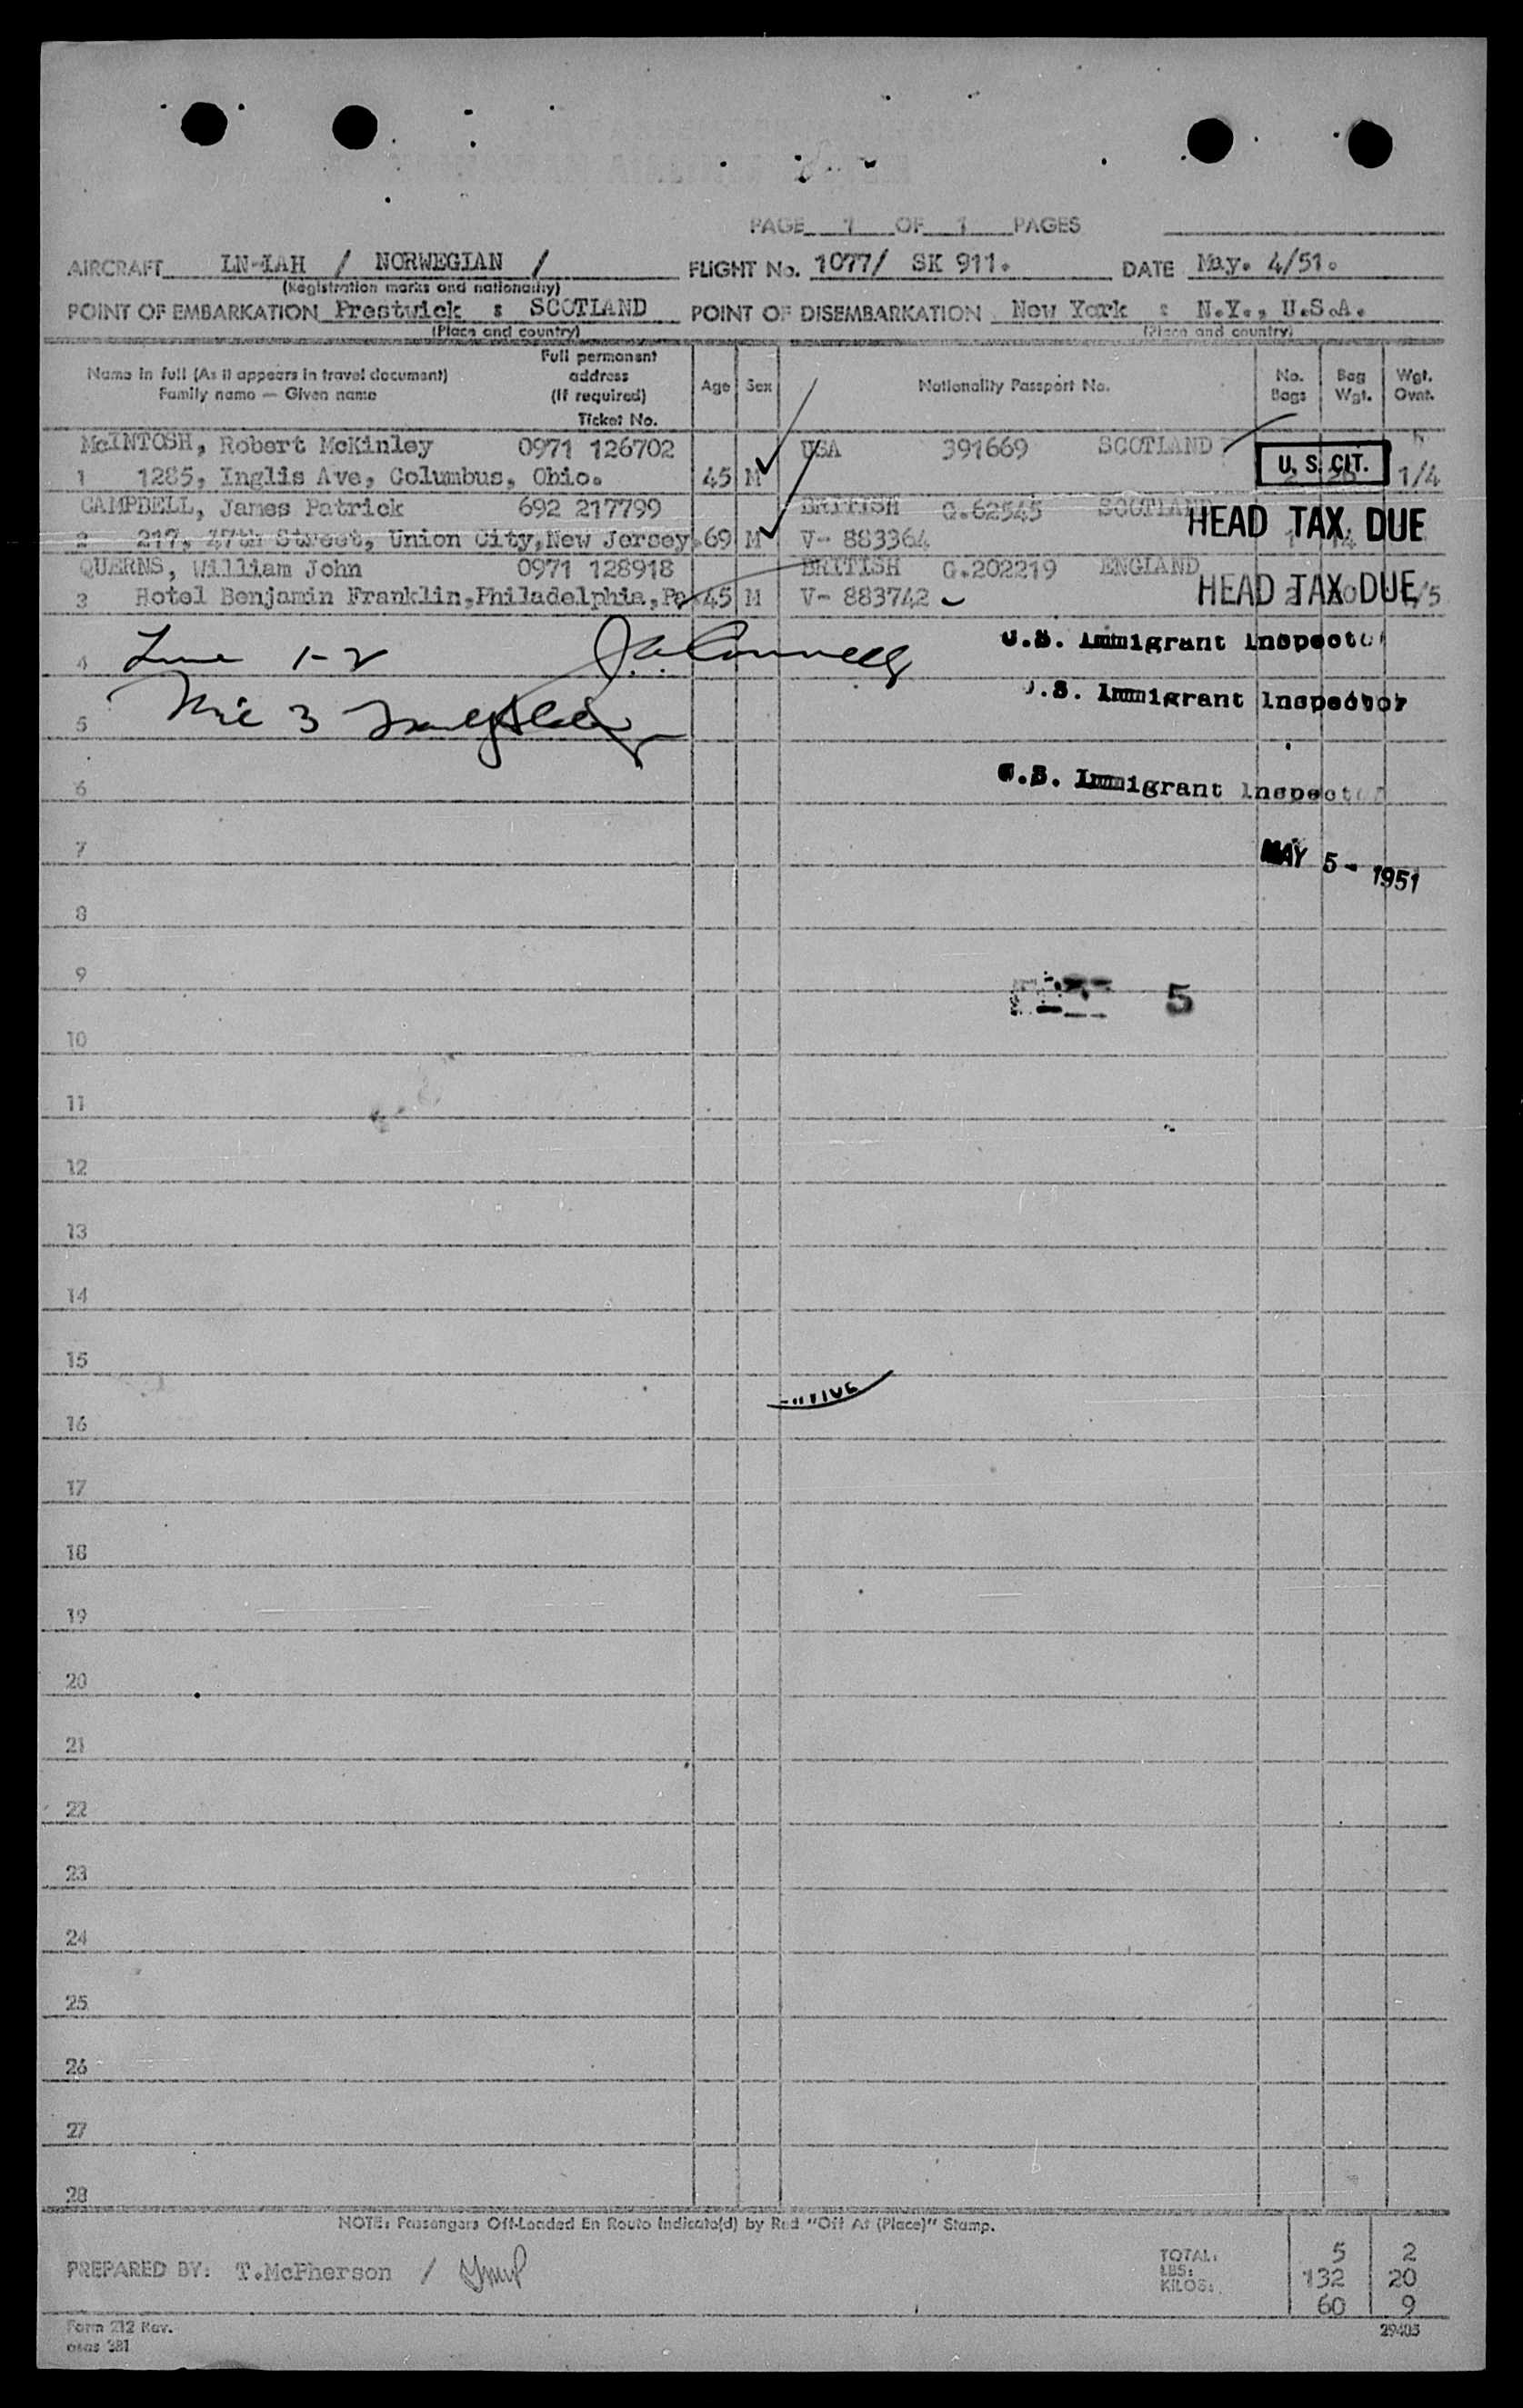 PAGE 1 OF 1 PAGES
AIRCRAFT LN-IAH / NORWEGIAN / FLIGHT No. 1077/ SK 911. DATE May. 4/51.
(Registration marks and nationality)
POINT OF EMBARKATION Prestwick : SCOTLAND POINT OF DISEMBARKATION New York : N.Y., U.S.A.
(Place and country) (Place and country)
Name in full (As it appears in travel document) Family name — Given name Full permanent address (If required) Ticket No. Age Sex Nationality Passport No. No. Bags Bag Wgt. Wgt. Ovnt.
McINTOSH, Robert McKinley 0971 126702 USA 391669 SCOTLAND
1 1285, Inglis Ave, Columbus, Ohio. 45 M U. S. CIT. 1/4
CAMPBELL, James Patrick 692 217799 BRITISH G.62545 SCOTLAND
HEAD TAX DUE
2 217, 47th Street, Union City, New Jersey. 69 M V- 883364
QUERNS, William John 0971 128918 BRITISH G.202219 ENGLAND
3 Hotel Benjamin Franklin, Philadelphia, Pa 45 M V- 883742 HEAD TAX DUE /5
U.S. Immigrant Inspector
4 Line 1-2
U.S. Immigrant Inspector
5 Line 3
U.S. Immigrant Inspector
6
7
MAY 5 - 1951
8
9
5
10
11
12
13
14
15
16
17
18
19
20
21
22
23
24
25
26
27
28
NOTE: Passengers Off-Loaded En Route Indicate(d) by Red "Off At (Place)" Stamp.
TOTAL: 5 2
PREPARED BY: T.McPherson /
LBS: 132 20
KILOS: 60 9
Form 212 Rev.
29405